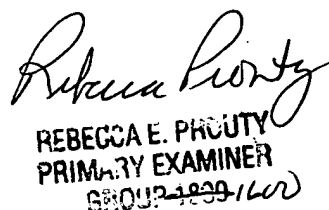 Rebecca Prouty
REBECCA E. PROUTY
PRIMARY EXAMINER
GROUP 1800 1600